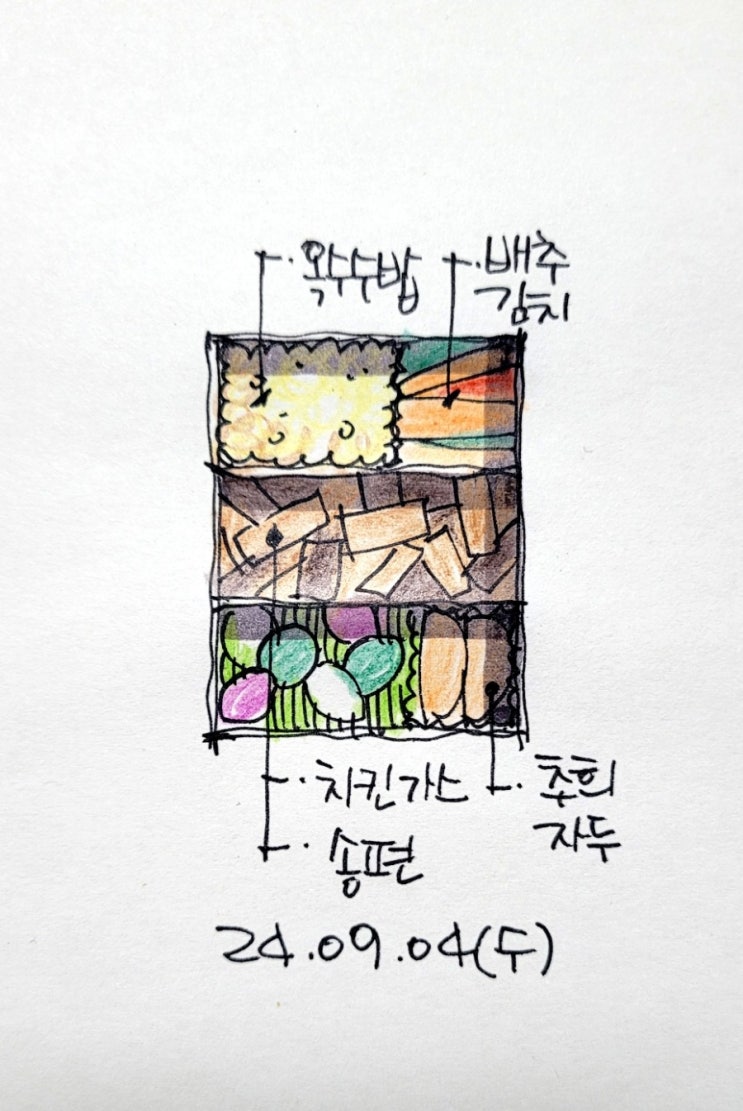 옥수수밥
배추
김치
치킨가스
송편
추희
자두
24.09.04(수)